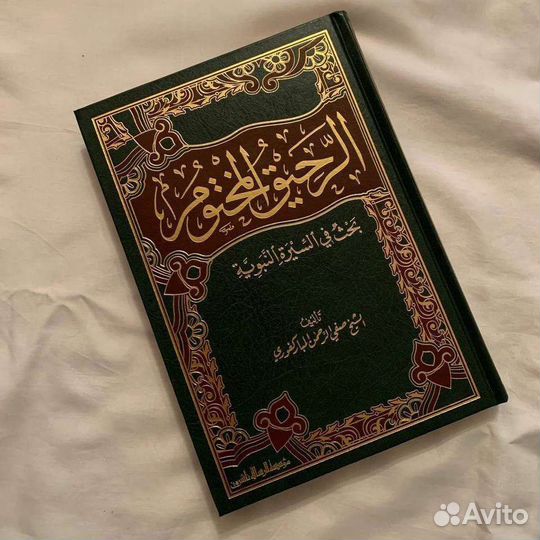 الرحيق المختوم
بحث في السيرة النبوية
تأليف
الشيخ صفي الرحمن المباركفوري
مؤسسة الرسالة ناشرون
Avito